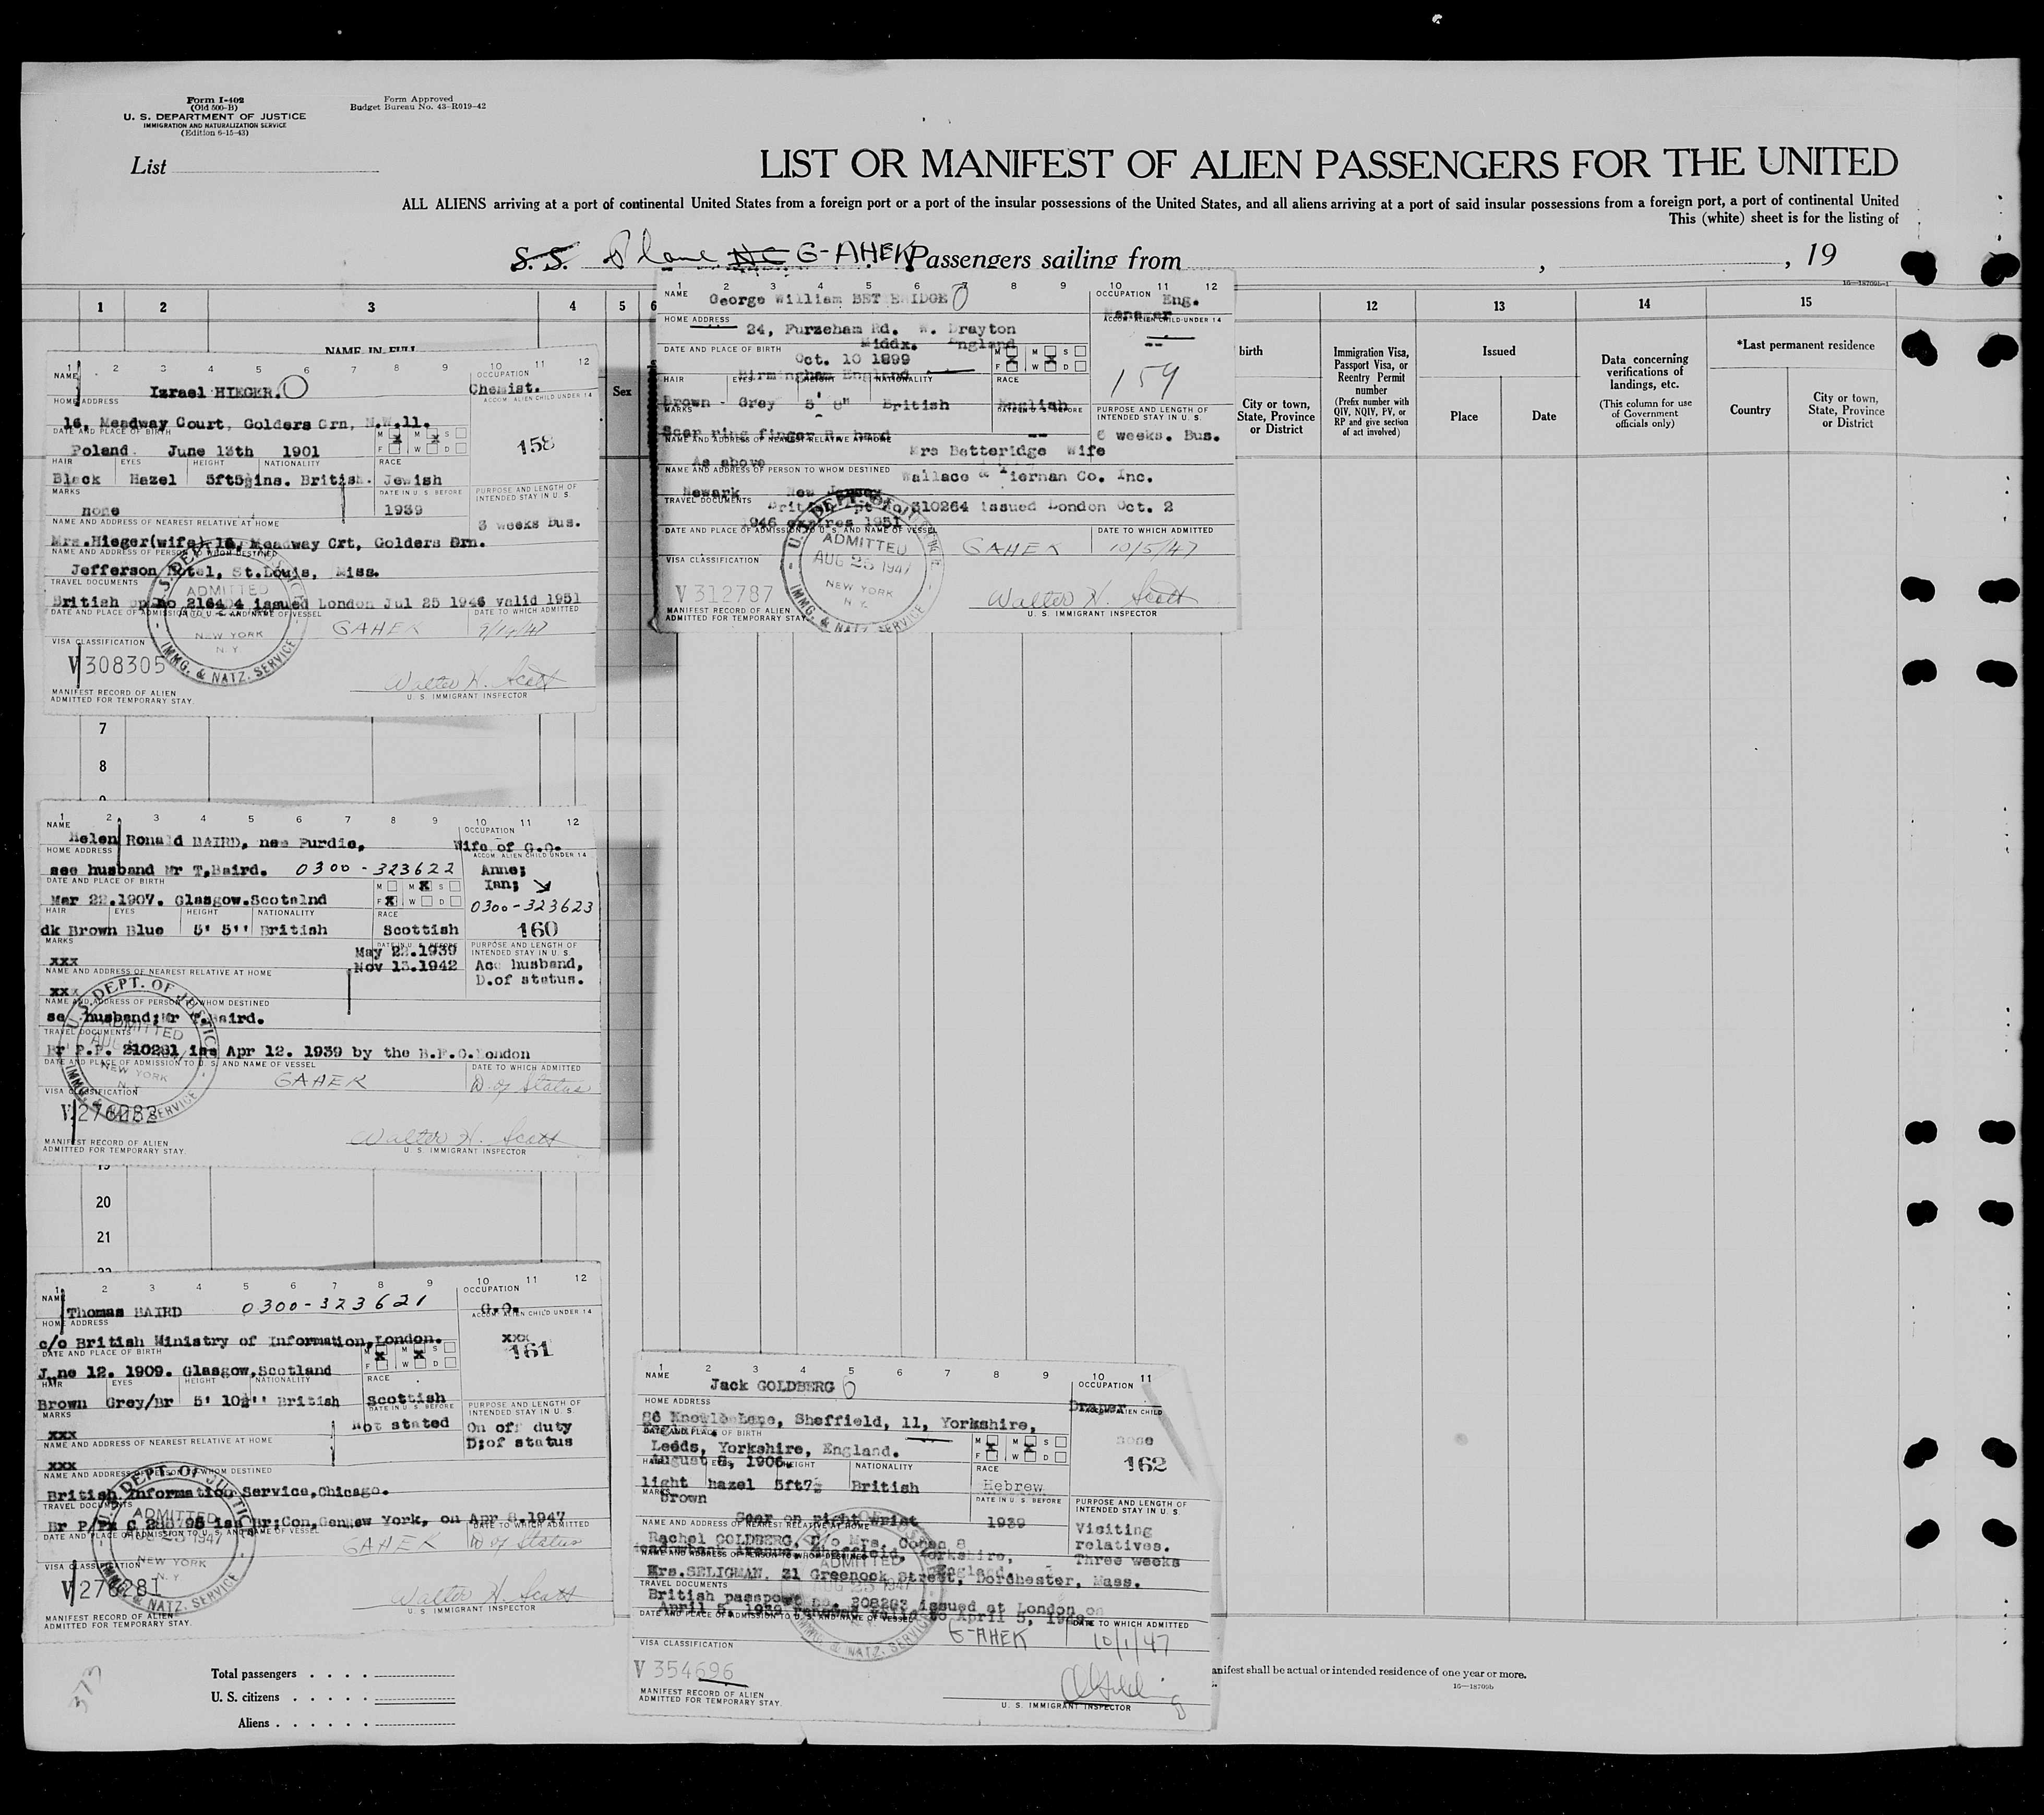 Form I-402
(Old 500-B)
U. S. DEPARTMENT OF JUSTICE
IMMIGRATION AND NATURALIZATION SERVICE
(Edition 6-15-43)
Form Approved
Budget Bureau No. 43-R019-42
List
LIST OR MANIFEST OF ALIEN PASSENGERS FOR THE UNITED
ALL ALIENS arriving at a port of continental United States from a foreign port or a port of the insular possessions of the United States, and all aliens arriving at a port of said insular possessions from a foreign port, a port of continental United
This (white) sheet is for the listing of
S.S. Plane NC G-AHEK Passengers sailing from , , 19
16—18709b-1
1 2 3 4 5 6
NAME IN FULL
Sex
birth
City or town,
State, Province
or District
12
Immigration Visa,
Passport Visa, or
Reentry Permit
number
(Prefix number with
QIV, NQIV, PV, or
RP and give section
of act involved)
13
Issued
Place Date
14
Data concerning
verifications of
landings, etc.
(This column for use
of Government
officials only)
15
*Last permanent residence
Country
City or town,
State, Province
or District
1 2 3 4 5 6 7 8 9 10 11 12
NAME
Izrael HIEGER.
OCCUPATION
Chemist.
ACCOM. ALIEN CHILD UNDER 14
HOME ADDRESS
16, Meadway Court, Golders Grn, N.W.11.
DATE AND PLACE OF BIRTH
Poland June 13th 1901
M X M X S
F W D
158
HAIR EYES HEIGHT NATIONALITY RACE
Black Hazel British. Jewish
MARKS DATE IN U. S. BEFORE PURPOSE AND LENGTH OF INTENDED STAY IN U. S.
none 1939
3 weeks Bus.
NAME AND ADDRESS OF NEAREST RELATIVE AT HOME
Mrs.Hieger(wife) 16, Meadway Crt, Golders Grn.
NAME AND ADDRESS OF PERSON TO WHOM DESTINED
Jefferson Hotel, St.Louis, Miss.
TRAVEL DOCUMENTS
British pp no issued London Jul 25 1946 valid 1951
DATE AND PLACE OF ADMISSION TO U. S. AND NAME OF VESSEL DATE TO WHICH ADMITTED
GAHEK
VISA CLASSIFICATION
V 308305
U.S. DEPT. OF JUSTICE
ADMITTED
NEW YORK
N.Y.
IMMG. & NATZ. SERVICE
MANIFEST RECORD OF ALIEN
ADMITTED FOR TEMPORARY STAY.
Walter H. Scott
U. S. IMMIGRANT INSPECTOR
1 2 3 4 5 6 7 8 9 10 11 12
NAME
George William BETTERIDGE
OCCUPATION
Eng.
Manager
ACCOM. ALIEN CHILD UNDER 14
HOME ADDRESS
24, Furzeham Rd. W. Drayton
Middx. England
DATE AND PLACE OF BIRTH
Oct. 10 1899
Birmingham England
M X M X S
F W D
159
HAIR EYES HEIGHT NATIONALITY RACE
Brown - Grey 5' 8" British English
MARKS DATE IN U. S. BEFORE PURPOSE AND LENGTH OF INTENDED STAY IN U. S.
Scar ring finger R. hand --
6 weeks. Bus.
NAME AND ADDRESS OF NEAREST RELATIVE AT HOME
Mrs Betteridge Wife
As above
NAME AND ADDRESS OF PERSON TO WHOM DESTINED
Wallace & Tiernan Co. Inc.
Newark New Jersey
TRAVEL DOCUMENTS
British pt No 310264 issued London Oct. 2
1946 expires 1951
DATE AND PLACE OF ADMISSION TO U. S. AND NAME OF VESSEL DATE TO WHICH ADMITTED
GAHEK 10/5/47
VISA CLASSIFICATION
V 312787
U.S. DEPT. OF JUSTICE
ADMITTED
AUG 25 1947
NEW YORK
N.Y.
IMMG. & NATZ. SERVICE
MANIFEST RECORD OF ALIEN
ADMITTED FOR TEMPORARY STAY.
Walter H. Scott
U. S. IMMIGRANT INSPECTOR
7
8
1 2 3 4 5 6 7 8 9 10 11 12
NAME
Helen Ronald BAIRD, nee Purdie,
OCCUPATION
Wife of G.O.
ACCOM. ALIEN CHILD UNDER 14
HOME ADDRESS
see husband Mr T.Baird. 0300-323622
Anne;
Ian;
0300-323623
DATE AND PLACE OF BIRTH
Mar 22.1907. Glasgow.Scotalnd
M M X S
F X W D
160
HAIR EYES HEIGHT NATIONALITY RACE
dk Brown Blue 5' 5'' British Scottish
MARKS DATE IN U. S. BEFORE PURPOSE AND LENGTH OF INTENDED STAY IN U. S.
xxx May 22.1939
Nov 13.1942
Acc husband,
D.of status.
NAME AND ADDRESS OF NEAREST RELATIVE AT HOME
xxx
NAME AND ADDRESS OF PERSON TO WHOM DESTINED
see husband;Mr T.Baird.
TRAVEL DOCUMENTS
Br P.P. 210281 iss Apr 12. 1939 by the B.F.O.London
DATE AND PLACE OF ADMISSION TO U. S. AND NAME OF VESSEL DATE TO WHICH ADMITTED
GAHEK D. of Status
VISA CLASSIFICATION
V 276282
U.S. DEPT. OF JUSTICE
ADMITTED
NEW YORK
N.Y.
IMMG. & NATZ. SERVICE
MANIFEST RECORD OF ALIEN
ADMITTED FOR TEMPORARY STAY.
Walter H. Scott
U. S. IMMIGRANT INSPECTOR
20
21
1 2 3 4 5 6 7 8 9 10 11 12
NAME
Thomas BAIRD 0300-323621
OCCUPATION
G.O.
ACCOM. ALIEN CHILD UNDER 14
xxx
HOME ADDRESS
c/o British Ministry of Information,London.
DATE AND PLACE OF BIRTH
June 12. 1909. Glasgow,Scotland
M X M X S
F W D
161
HAIR EYES HEIGHT NATIONALITY RACE
Brown Grey/Br 5' 10½'' British Scottish
MARKS DATE IN U. S. BEFORE PURPOSE AND LENGTH OF INTENDED STAY IN U. S.
xxx Not stated
On off duty
D;of status
NAME AND ADDRESS OF NEAREST RELATIVE AT HOME
xxx
NAME AND ADDRESS OF PERSON TO WHOM DESTINED
British Information Service,Chicago.
TRAVEL DOCUMENTS
Br P/Px C iss Br;Con,Gen New York, on Apr 8.1947
DATE AND PLACE OF ADMISSION TO U. S. AND NAME OF VESSEL DATE TO WHICH ADMITTED
GAHEK D of Status
VISA CLASSIFICATION
V 276281
U.S. DEPT. OF JUSTICE
ADMITTED
AUG 25 1947
NEW YORK
N.Y.
IMMG. & NATZ. SERVICE
MANIFEST RECORD OF ALIEN
ADMITTED FOR TEMPORARY STAY.
Walter H. Scott
U. S. IMMIGRANT INSPECTOR
1 2 3 4 5 6 7 8 9 10 11
NAME
Jack GOLDBERG
OCCUPATION
Draper
ACCOM. ALIEN CHILD
none
HOME ADDRESS
Knowle Lane, Sheffield, 11, Yorkshire,
DATE AND PLACE OF BIRTH
Leeds, Yorkshire, England.
August 8, 1906.
M X M X S
F W D
162
HAIR HEIGHT NATIONALITY RACE
light hazel 5ft7½ British Hebrew
Brown
MARKS DATE IN U. S. BEFORE PURPOSE AND LENGTH OF INTENDED STAY IN U. S.
Scar on Right Wrist 1939
Visiting
relatives.
Three weeks
NAME AND ADDRESS OF NEAREST RELATIVE AT HOME
Rachel GOLDBERG, C/o Mrs. Cohen 8
Avenue, Sheffield, Yorkshire,
England.
NAME AND ADDRESS OF PERSON TO WHOM DESTINED
Mrs.SELIGMAN. 31 Greenock Street, Dorchester, Mass.
TRAVEL DOCUMENTS
British passport no. 308283 issued at London on
April 5, 1939 renewed valid to April 5,
DATE AND PLACE OF ADMISSION TO U. S. AND NAME OF VESSEL DATE TO WHICH ADMITTED
G-AHEK 10/1/47
VISA CLASSIFICATION
V 354696
ADMITTED
AUG 25 1947
NATZ. SERVICE
MANIFEST RECORD OF ALIEN
ADMITTED FOR TEMPORARY STAY.
U. S. IMMIGRANT INSPECTOR
Total passengers
U. S. citizens
Aliens
anifest shall be actual or intended residence of one year or more.
16—18709b
373